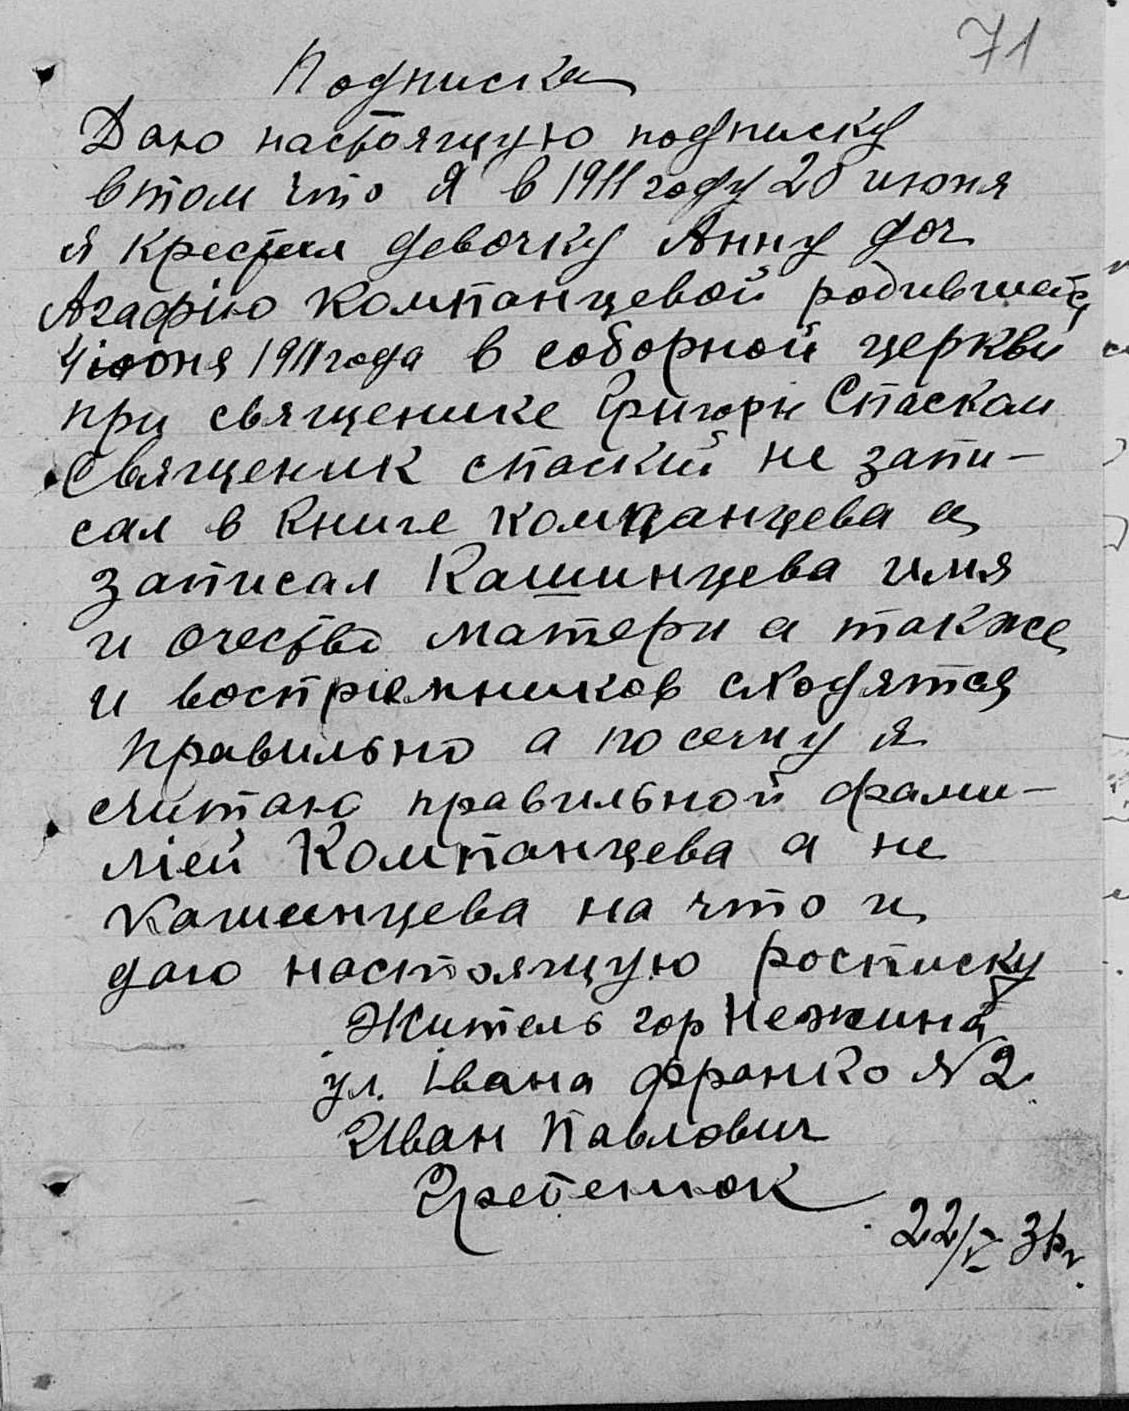 71
Подписка
Даю настоящую подписку
в том что я в 1911 году 20 июня
я крестил девочку Анну доч
Агафию Компанцевой родившаяся
4 июня 1911 года в соборной церкви
при священике Григори Спаском
Священик спаский не запи-
сал в книге Компанцева а
записал Кашинцева имя
и очество матери а также
и восприемников сходятся
правильно а по сему я
считаю правильной фами-
лией Компанцева а не
Кашинцева на что и
даю настоящую росписку
Житель гор Нежина
ул. Iвана Франко N 2
Иван Павлович
Гребенюк
22/V